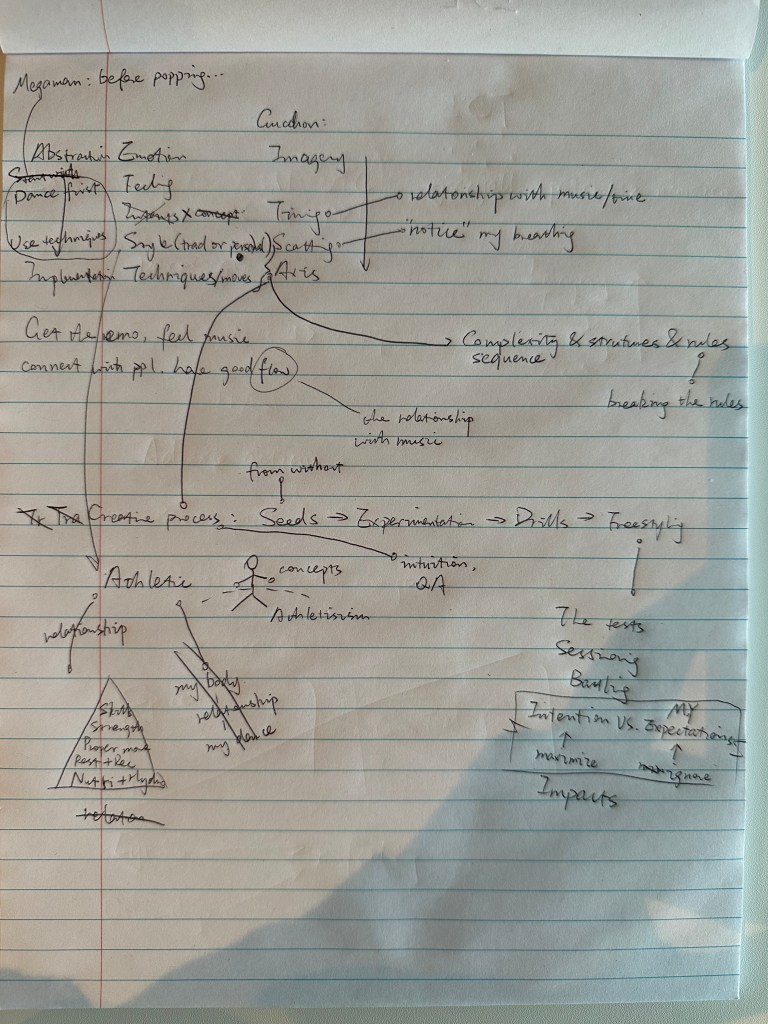 Megaman: before popping...
Guidion:
Abstraction Emotion Imagery
Start with
Dance first Feeling
Intents x concept Timing relationship with music/vibe
Use techniques Style (trad or personal) Scatting "notice" my breathing
Implementation Techniques/moves Axis
Get the demo, feel music
connect with ppl. have good flow
Complexity & strutures & rules
sequence
breaking the rules
the relationship
with music
from without
Tx Tra Creative process: Seeds → Experimentation → Drills → Freestyling
intuition,
QA
Athletic
concepts
Athletisism
relationship
my body
relationship
my dance
Skills
Strength
Proper move
Rest + Rec
Nutri + Hydra
The tests
Sessioning
Battling
Intention vs. MY Expectations
maximize
ignore
Impacts